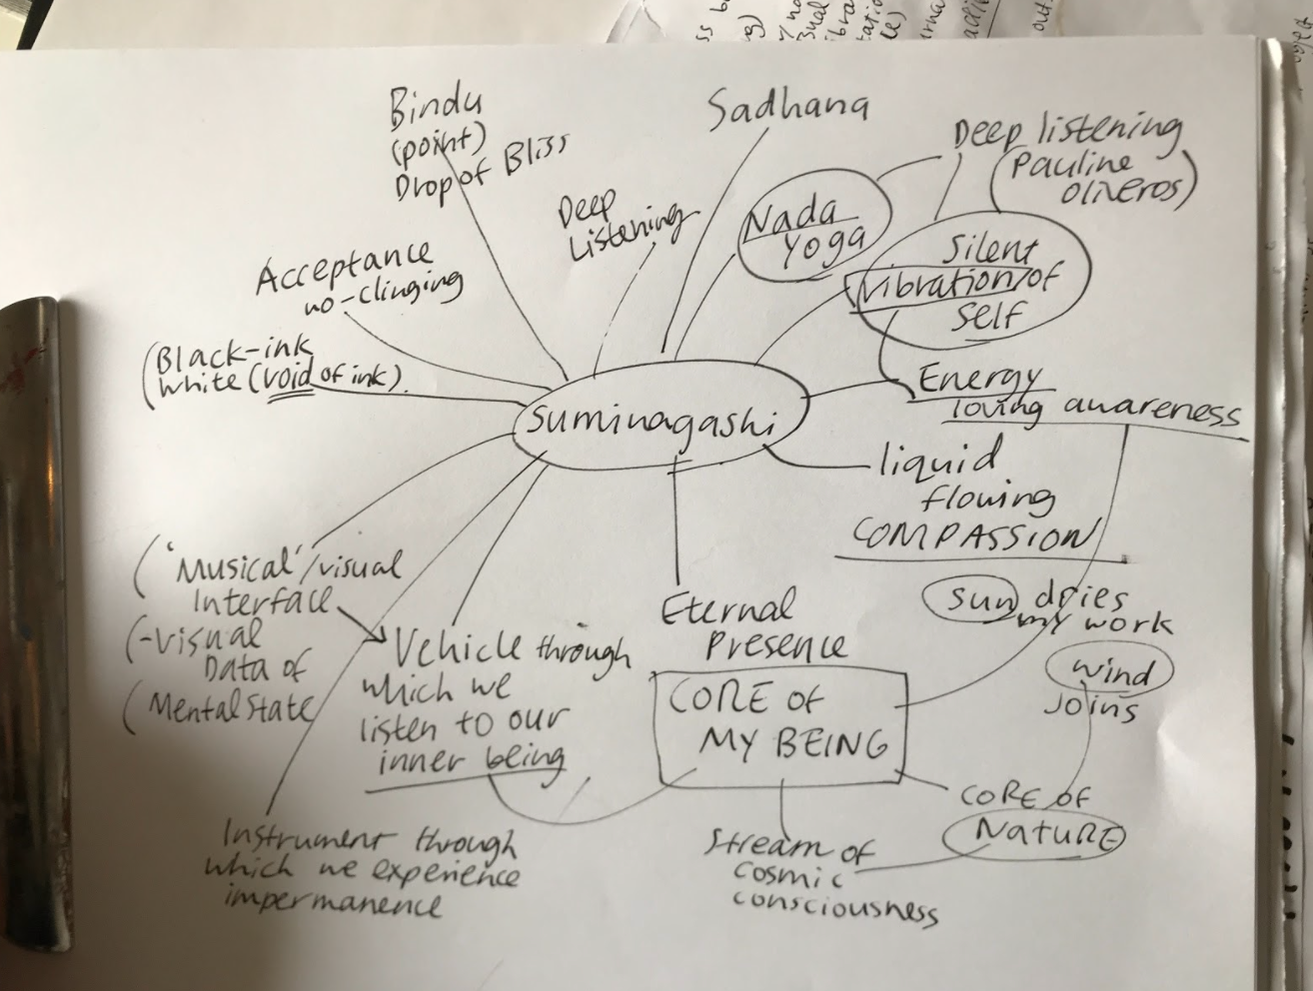 Bindu
(point)
Drop of Bliss
Sadhana
Deep listening
(Pauline
Oliveros)
Deep
Listening
Nada
Yoga
Silent
Vibration/of
Self
Acceptance
no-clinging
(Black-ink
White (void of ink).
Suminagashi
Energy
loving awareness
liquid
flowing
COMPASSION
('Musical'/visual
Interface
(-Visual
Data of
(Mental State
Vehicle through
which we
listen to our
inner being
Eternal
Presence
CORE of
MY BEING
Sun dries
my work
Wind
Joins
CORE OF
NATURE
Stream of
cosmic
consciousness
Instrument through
which we experience
impermanence